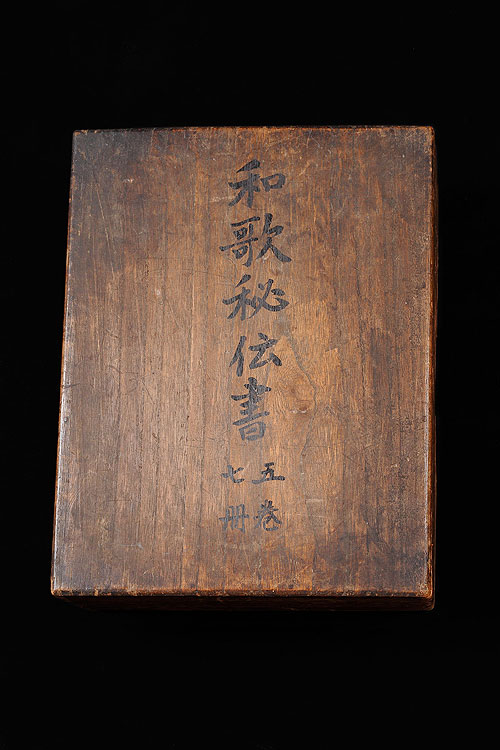 和歌秘伝書
五巻
七冊